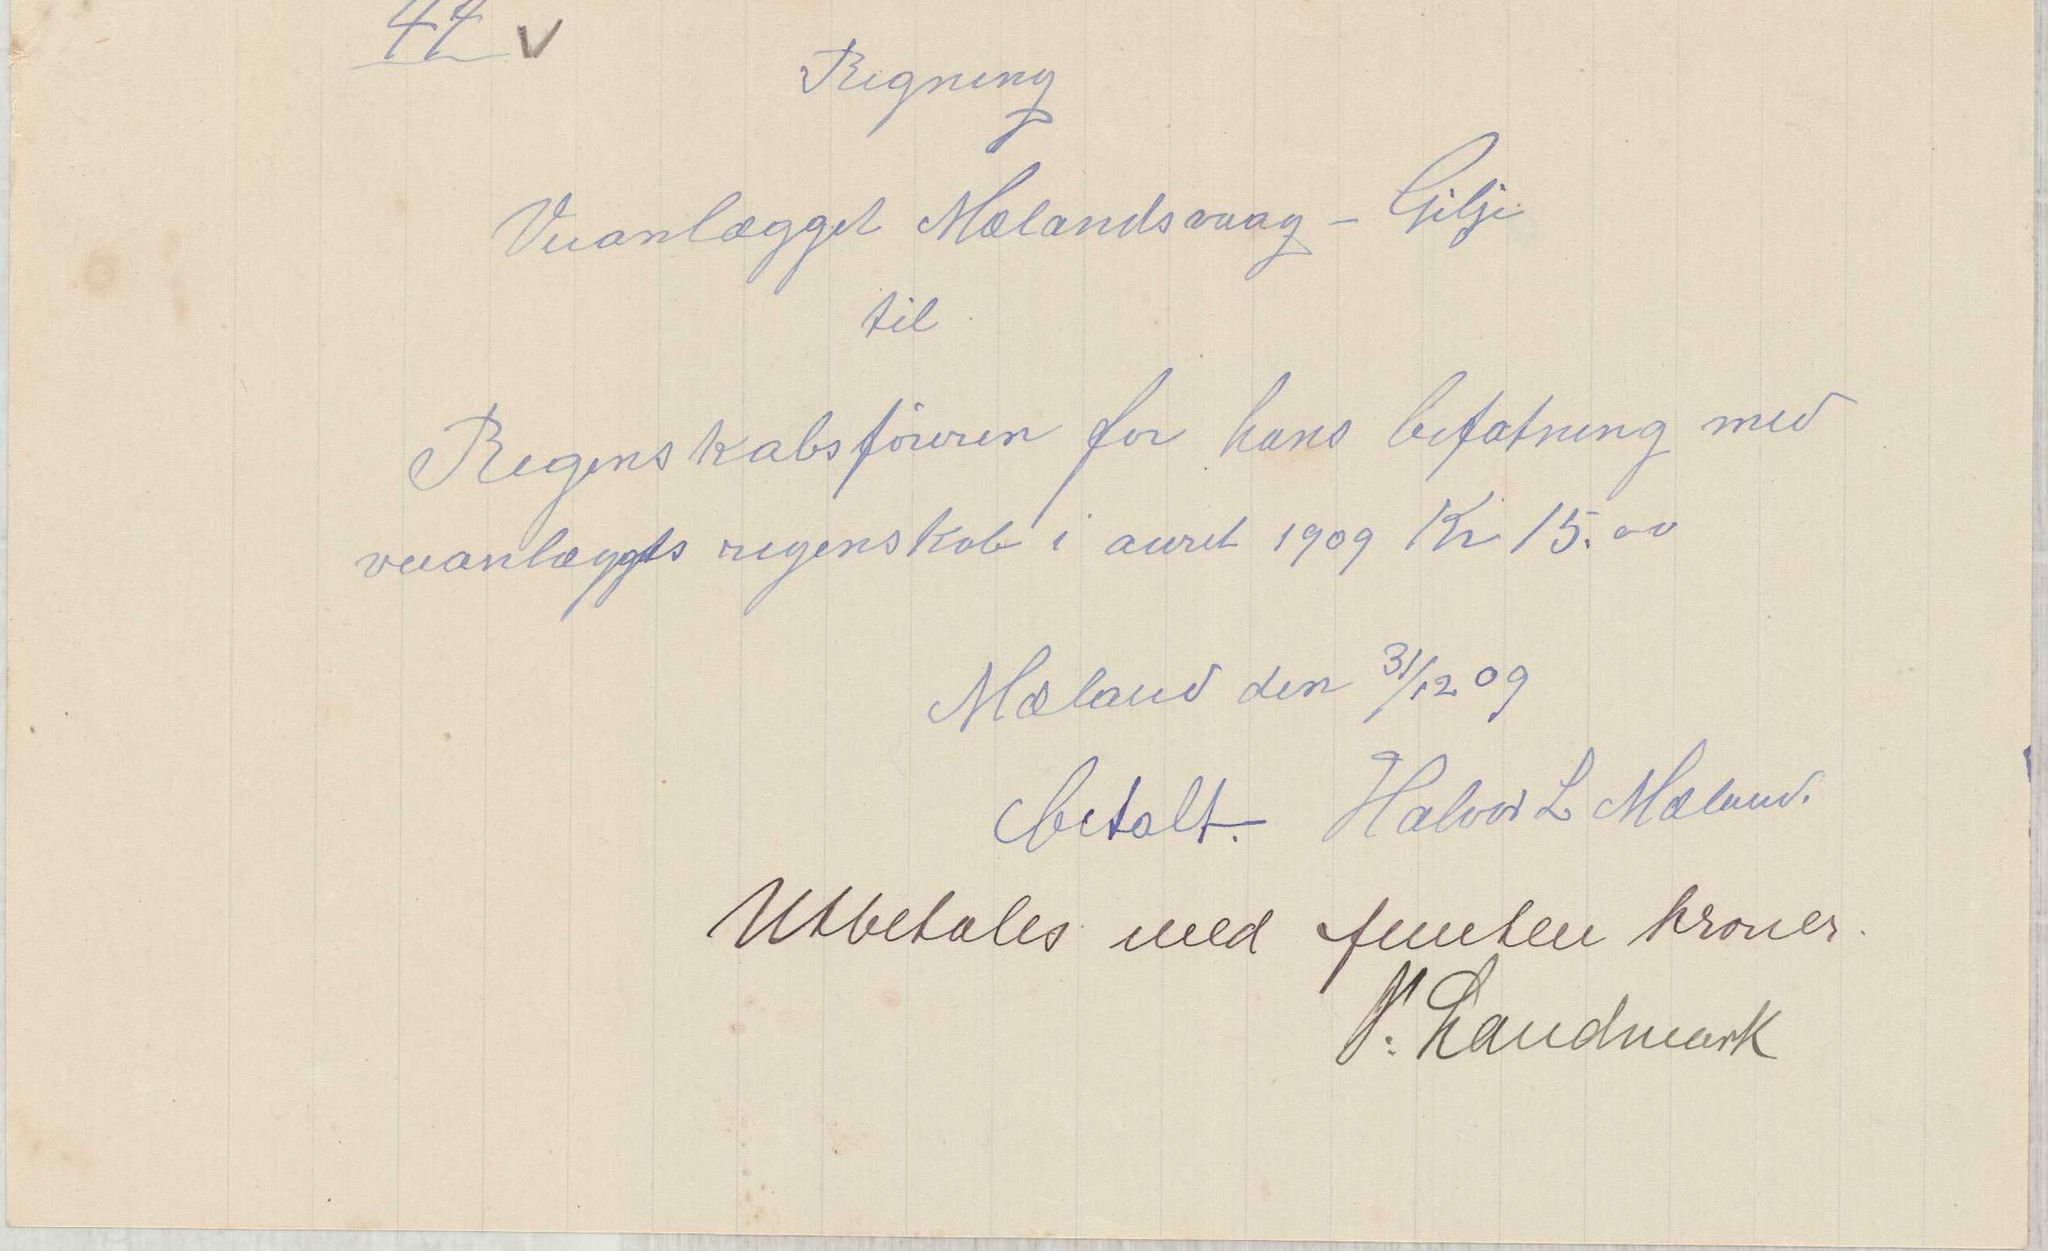 44 V
Regning
Veianlægget Mælandsvaag - Gilje
til
Regenskabsføreren for hans befatning med
veianlæggets regenskab i aaret 1909 Kr 15.00
Mæland den 31/12 09
betalt. Halvor L Mæland.
Utbetales med femten kroner.
Landmark